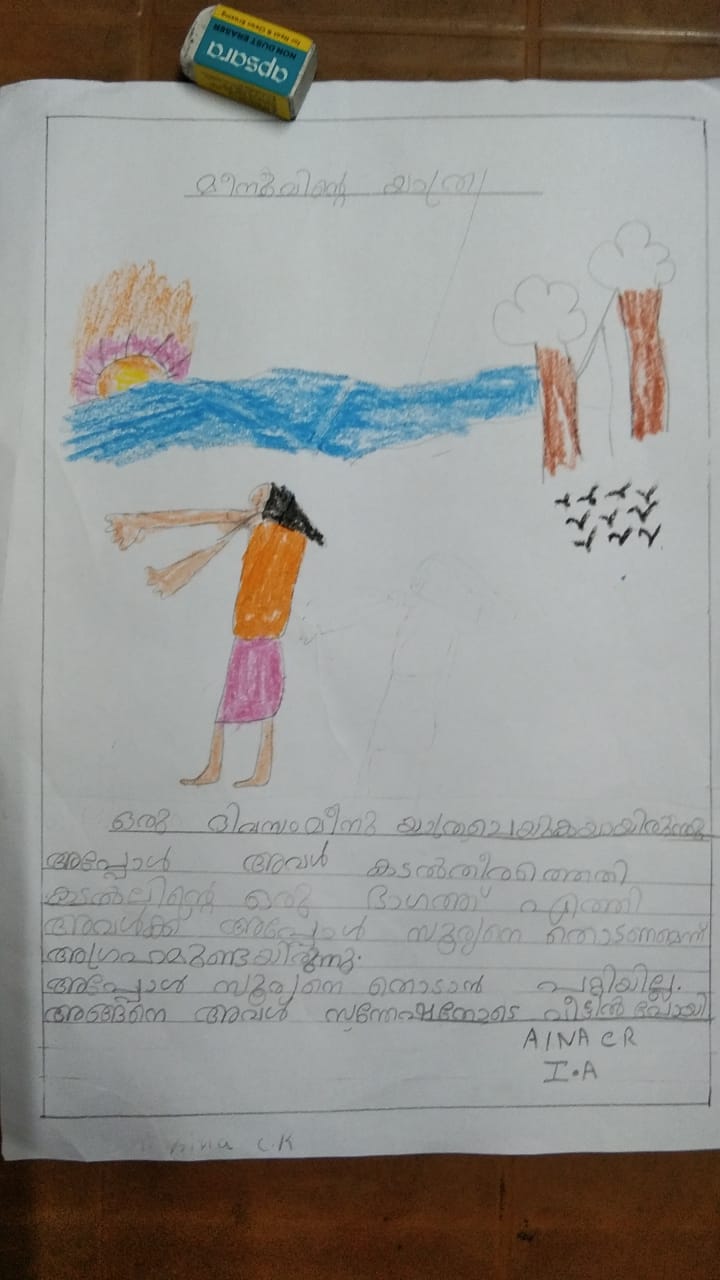 for Neat & Clean Erasing
NON DUST ERASER
apsara
മീനുവിന്റെ യാത്ര
ഒരു ദിവസം മീനു യാത്രചെയുകയായിരുന്നു
അപ്പോൾ അവൾ കടൽതീരത്തെത്തി
കടൽലിന്റെ ഒരു ഭാഗത്ത് എത്തി
അവൾക്ക് അപ്പോൾ സൂര്യനെ തൊടണമെന്ന്
അഗ്രഹമുണ്ടയിരുന്നു.
അപ്പോൾ സൂര്യനെ തൊടാൻ പറ്റിയില്ല.
അങ്ങെനെ അവൾ സന്തോഷത്തോടെ വീട്ടിൽ പോയി
AINA C R
I.A
Aina C.K